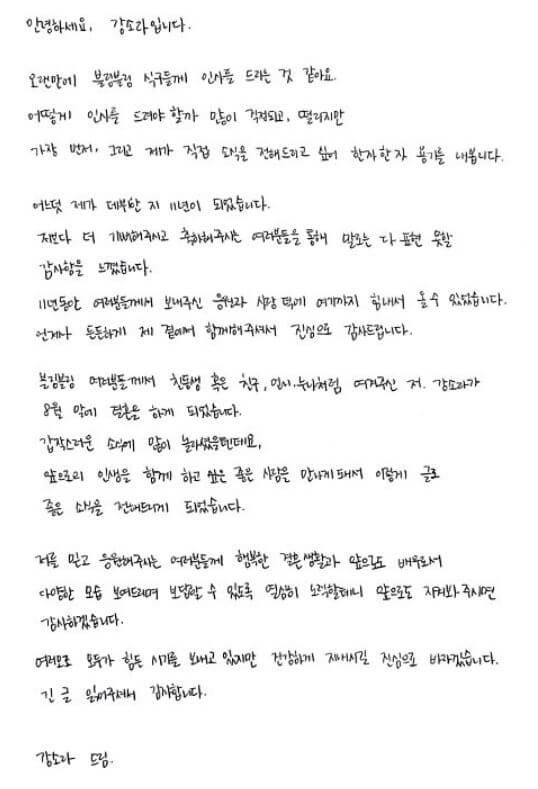 안녕하세요, 강소라입니다.
오랜만에 블링블링 식구들께 인사를 드리는 것 같아요.
어떻게 인사를 드려야 할까 많이 걱정되고, 떨리지만
가장 먼저, 그리고 제가 직접 소식을 전해드리고 싶어 한자 한자 용기를 내봅니다.
어느덧 제가 데뷔한 지 11년이 되었습니다.
저보다 더 기뻐해주시고 축하해주시는 여러분들을 통해 말로는 다 표현 못할
감사함을 느꼈습니다.
11년동안 여러분들께서 보내주신 응원과 사랑 덕에 여기까지 힘내서 올 수 있었습니다.
언제나 든든하게 제 곁에서 함께해주셔서 진심으로 감사드립니다.
블링블링 여러분들께서 친동생 혹은 친구, 언니·누나처럼 여겨주신 저. 강소라가
8월 말에 결혼을 하게 되었습니다.
갑작스러운 소식에 많이 놀라셨을텐데요,
앞으로의 인생을 함께 하고 싶은 좋은 사람을 만나게 돼서 이렇게 글로
좋은 소식을 전해드리게 되었습니다.
저를 믿고 응원해주시는 여러분들께 행복한 결혼생활과 앞으로도 배우로서
다양한 모습 보여드리며 보답할 수 있도록 열심히 노력할테니 앞으로도 지켜봐 주시면
감사하겠습니다.
여러모로 모두가 힘든 시기를 보내고 있지만 건강하게 지내시길 진심으로 바라겠습니다.
긴 글 읽어주셔서 감사합니다.
강소라 드림.